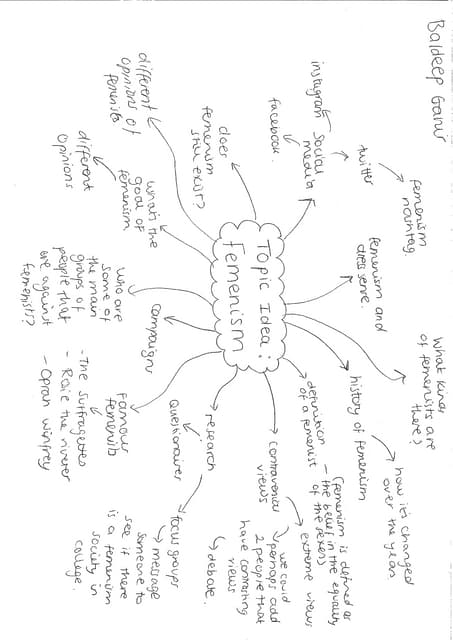 Baldeep Gaur
Topic Idea:
Femenism
does
femenism
still exist?
Social
media
instagram
facebook.
twitter
femenism
hashtag
femenism and
dress sense.
What kind
of femenists are
there?
history of femenism
how it's changed
over the years
definition
of a femenist
(femenism is defined as
- the belief in the equality
of the sexes)
controversial
views
extreme views
we could
perhaps add
2 people that
have contrasting
views
debate.
research
Questionaires
focus groups
message
someone to
see if there
is a femenism
society in
college.
famous
femenists
- The Suffragettes
- Rosie the riveter
- Oprah Winfrey
campaigns
who are
some of
the main
groups of
people that
are against
femenist?
what's the
goal of
femenism
different
opinions
different
opinions of
femenists